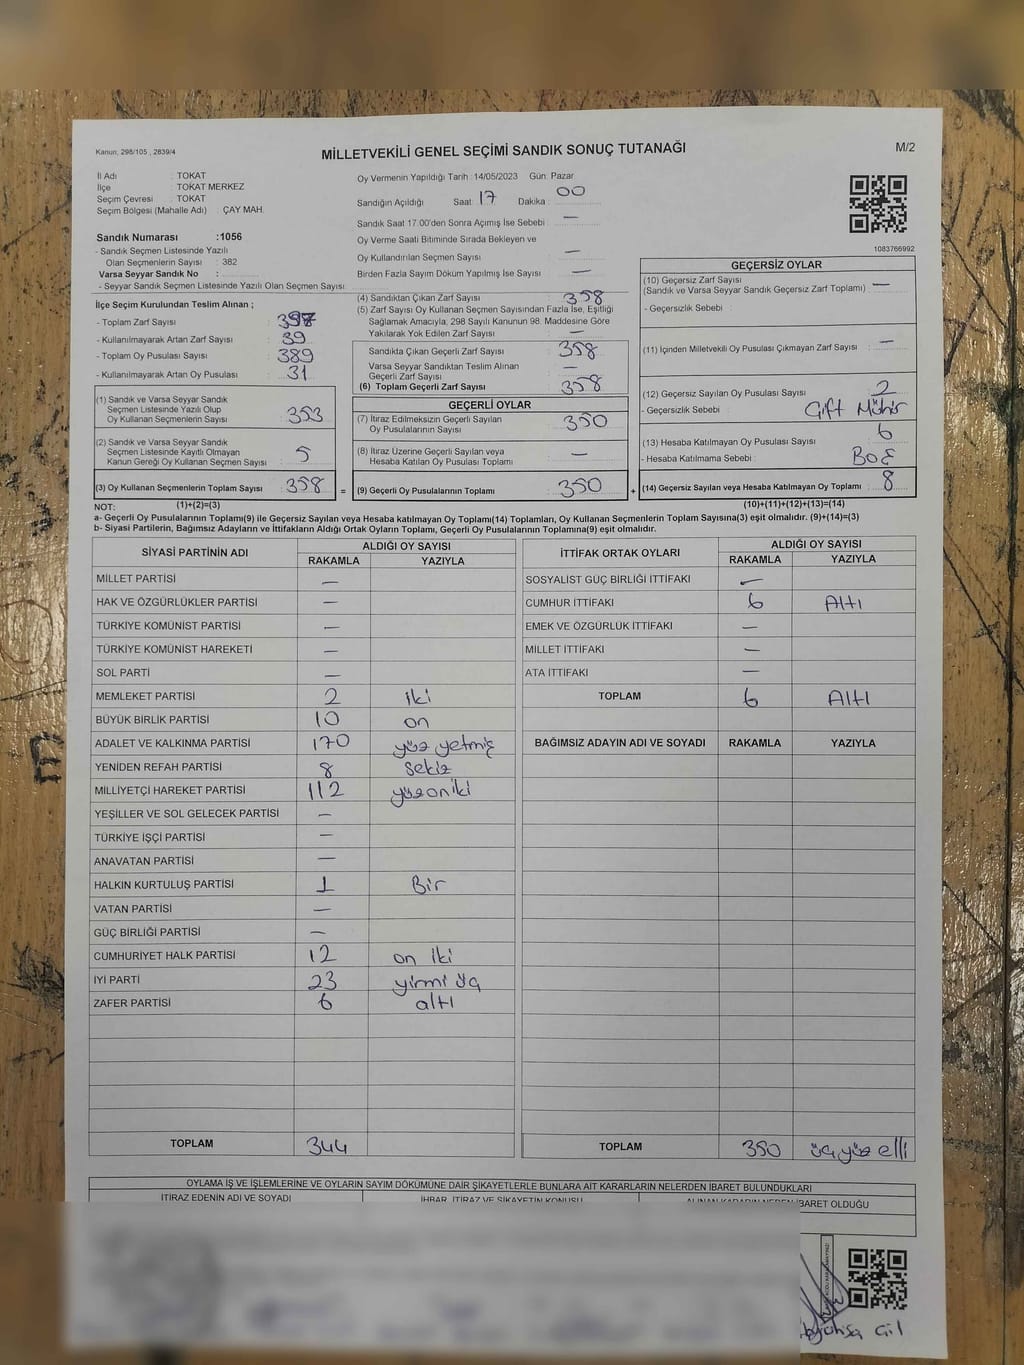 Kanun, 298/105 , 2839/4
MİLLETVEKİLİ GENEL SEÇİMİ SANDIK SONUÇ TUTANAĞI
M/2
İl Adı : TOKAT
İlçe : TOKAT MERKEZ
Seçim Çevresi : TOKAT
Seçim Bölgesi (Mahalle Adı) : ÇAY MAH.
Sandık Numarası :1056
- Sandık Seçmen Listesinde Yazılı
Olan Seçmenlerin Sayısı : 382
Varsa Seyyar Sandık No :
- Seyyar Sandık Seçmen Listesinde Yazılı Olan Seçmen Sayısı:
İlçe Seçim Kurulundan Teslim Alınan ;
- Toplam Zarf Sayısı : 397
- Kullanılmayarak Artan Zarf Sayısı : 39
- Toplam Oy Pusulası Sayısı : 389
- Kullanılmayarak Artan Oy Pusulası : 31
(1) Sandık ve Varsa Seyyar Sandık
Seçmen Listesinde Yazılı Olup
Oy Kullanan Seçmenlerin Sayısı : 353
(2) Sandık ve Varsa Seyyar Sandık
Seçmen Listesinde Kayıtlı Olmayan
Kanun Gereği Oy Kullanan Seçmen Sayısı : 5
(3) Oy Kullanan Seçmenlerin Toplam Sayısı : 358
(1)+(2)=(3)
Oy Vermenin Yapıldığı Tarih :14/05/2023 Gün: Pazar
Sandığın Açıldığı Saat: 17 Dakika : 00
Sandık Saat 17:00'den Sonra Açımış İse Sebebi : —
Oy Verme Saati Bitiminde Sırada Bekleyen ve
Oy Kullandırılan Seçmen Sayısı : —
Birden Fazla Sayım Döküm Yapılmış İse Sayısı : —
(4) Sandıktan Çıkan Zarf Sayısı : 358
(5) Zarf Sayısı Oy Kullanan Seçmen Sayısından Fazla İse, Eşitliği
Sağlamak Amacıyla, 298 Sayılı Kanunun 98. Maddesine Göre
Yakılarak Yok Edilen Zarf Sayısı : —
Sandıkta Çıkan Geçerli Zarf Sayısı : 358
Varsa Seyyar Sandıktan Teslim Alınan
Geçerli Zarf Sayısı : —
(6) Toplam Geçerli Zarf Sayısı : 358
GEÇERLİ OYLAR
(7) İtiraz Edilmeksizin Geçerli Sayılan
Oy Pusulalarının Sayısı : 350
(8) İtiraz Üzerine Geçerli Sayılan veya
Hesaba Katılan Oy Pusulası Toplamı : —
= (9) Geçerli Oy Pusulalarının Toplamı : 350 +
1083766992
GEÇERSİZ OYLAR
(10) Geçersiz Zarf Sayısı
(Sandık ve Varsa Seyyar Sandık Geçersiz Zarf Toplamı) : —
- Geçersizlik Sebebi :
(11) İçinden Milletvekili Oy Pusulası Çıkmayan Zarf Sayısı : —
(12) Geçersiz Sayılan Oy Pusulası Sayısı : 2
- Geçersizlik Sebebi : Çift Mühür
(13) Hesaba Katılmayan Oy Pusulası Sayısı : 6
- Hesaba Katılmama Sebebi : Boş
(14) Geçersiz Sayılan veya Hesaba Katılmayan Oy Toplamı : 8
(10)+(11)+(12)+(13)=(14)
NOT:
a- Geçerli Oy Pusulalarının Toplamı(9) ile Geçersiz Sayılan veya Hesaba katılmayan Oy Toplamı(14) Toplamları, Oy Kullanan Seçmenlerin Toplam Sayısına(3) eşit olmalıdır. (9)+(14)=(3)
b- Siyasi Partilerin, Bağımsız Adayların ve İttifakların Aldığı Ortak Oyların Toplamı, Geçerli Oy Pusulalarının Toplamına(9) eşit olmalıdır.
SİYASİ PARTİNİN ADI ALDIĞI OY SAYISI
RAKAMLA YAZIYLA
MİLLET PARTİSİ —
HAK VE ÖZGÜRLÜKLER PARTİSİ —
TÜRKİYE KOMÜNİST PARTİSİ —
TÜRKİYE KOMÜNİST HAREKETİ —
SOL PARTİ —
MEMLEKET PARTİSİ 2 iki
BÜYÜK BİRLİK PARTİSİ 10 on
ADALET VE KALKINMA PARTİSİ 170 yüz yetmiş
YENİDEN REFAH PARTİSİ 8 sekiz
MİLLİYETÇİ HAREKET PARTİSİ 112 yüzoniki
YEŞİLLER VE SOL GELECEK PARTİSİ —
TÜRKİYE İŞÇİ PARTİSİ —
ANAVATAN PARTİSİ —
HALKIN KURTULUŞ PARTİSİ 1 Bir
VATAN PARTİSİ —
GÜÇ BİRLİĞİ PARTİSİ —
CUMHURİYET HALK PARTİSİ 12 on iki
İYİ PARTİ 23 yirmi üç
ZAFER PARTİSİ 6 altı
TOPLAM 344
İTTİFAK ORTAK OYLARI ALDIĞI OY SAYISI
RAKAMLA YAZIYLA
SOSYALİST GÜÇ BİRLİĞİ İTTİFAKI —
CUMHUR İTTİFAKI 6 Altı
EMEK VE ÖZGÜRLÜK İTTİFAKI —
MİLLET İTTİFAKI —
ATA İTTİFAKI —
TOPLAM 6 Altı
BAĞIMSIZ ADAYIN ADI VE SOYADI RAKAMLA YAZIYLA
TOPLAM 350 üçyüz elli
OYLAMA İŞ VE İŞLEMLERİNE VE OYLARIN SAYIM DÖKÜMÜNE DAİR ŞİKAYETLERLE BUNLARA AİT KARARLARIN NELERDEN İBARET BULUNDUKLARI
İTİRAZ EDENİN ADI VE SOYADI İHBAR, İTİRAZ VE ŞİKAYETİN KONUSU ALINAN KARARIN NEDEN İBARET OLDUĞU